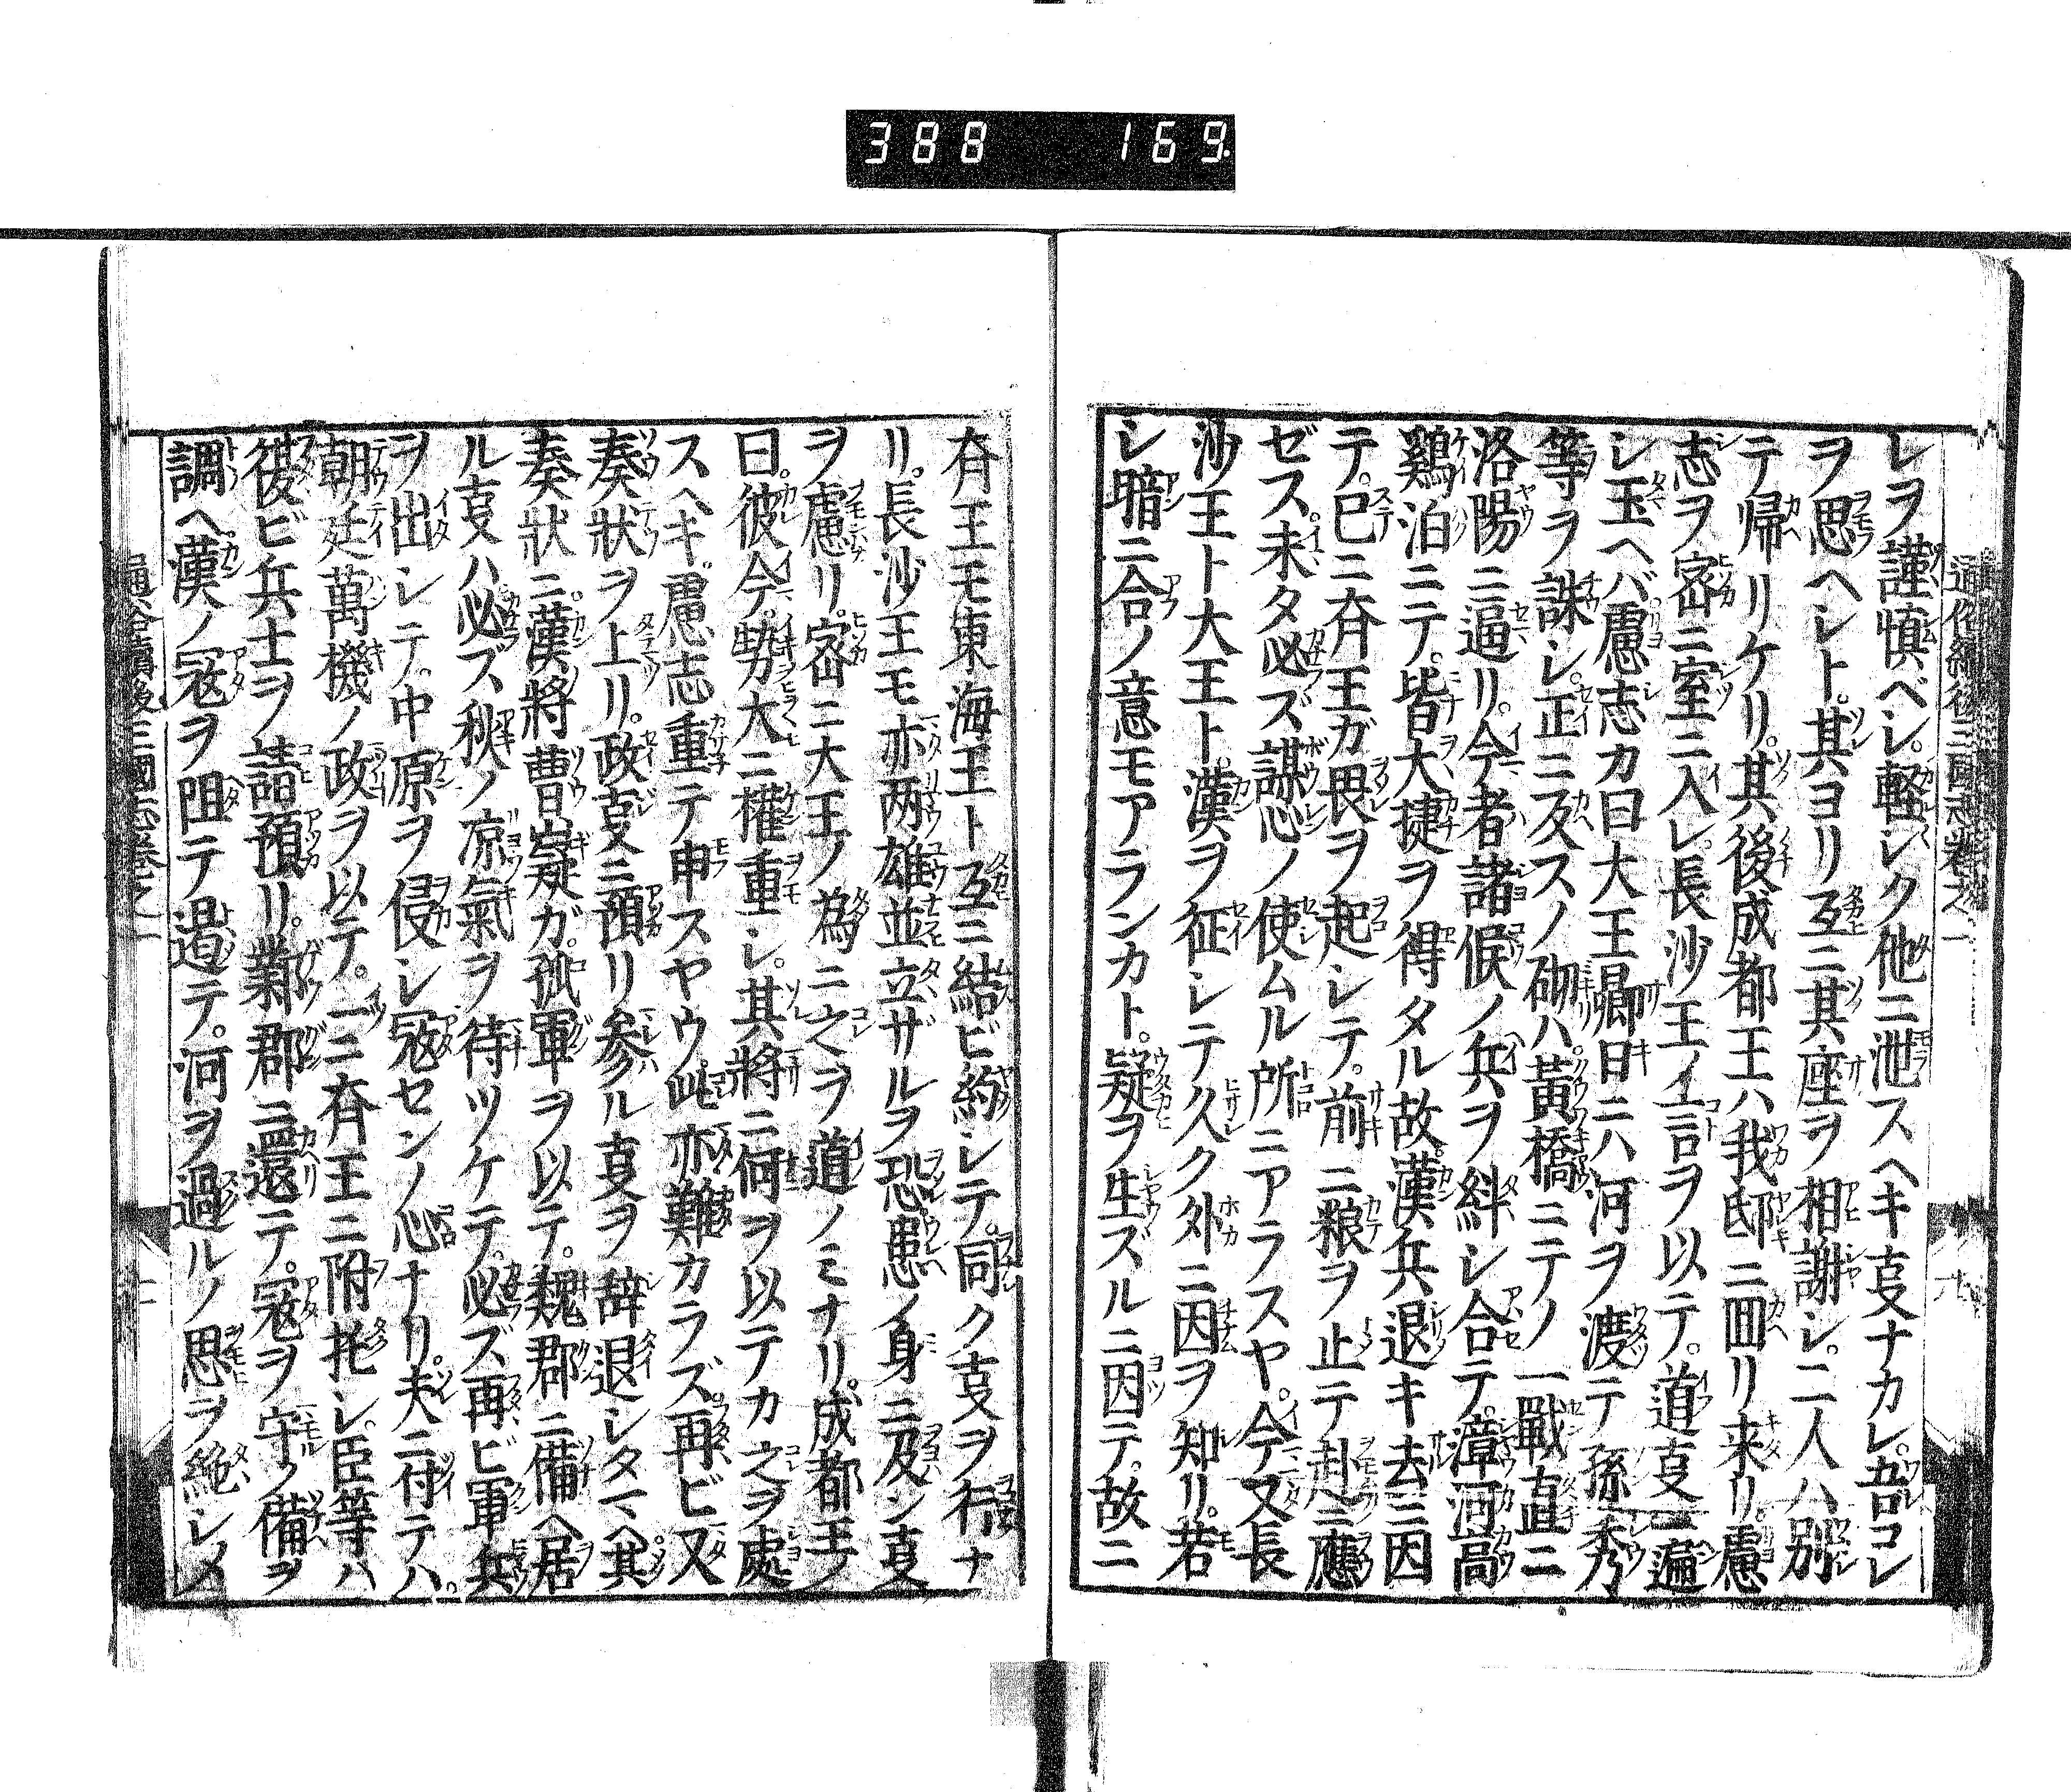 388 169.
通俗續後三國志卷之一
レヲ謹慎ベシ。軽シク他ニ泄スヘキ叓ナカレ。吾コレ
ヲ思ヘレト。其ヨリ互ニ其座ヲ相謝シ。二人ハ別
テ帰リケリ。其後成都王ハ我邸ニ囬リ来リ。慮
志ヲ密ニ室ニ入レ。長沙王ノ言ヲ以テ。道叓一遍
シ玉ヘバ慮志カ曰大王曩日ニハ河ヲ渡テ孫秀
等ヲ誅シ。正ニ及スノ砌ハ。黃橋ニテノ一戰直ニ
洛陽ニ逼リ。今者諸候ノ兵ヲ紏シ合テ。漳河高
鷄泊ニテ。皆大捷ヲ得タル故漢兵退キ去ニ因
テ。巳ニ斉王ガ畏ヲ起シテ。前ニ粮ヲ止テ赴ニ應
ゼス未タ必ズ謀心ノ使ムル所ニアラスヤ。今又長
沙王ト大王ト。漢ヲ征シテ久ク外ニ因ヲ知リ。若
シ暗ニ合ノ意モアランカト。疑ヲ生ズルニ因テ。故ニ
斉王モ東海王ト互ニ結ビ約シテ。同ク叓ヲ行ナ
リ。長沙王モ亦两雄並立ザルヲ恐患ノ身ニ及ン叓
ヲ慮リ。密ニ大王ノ為ニ之ヲ道ノミナリ。成都王ノ
曰。彼今。勢大ニ權重シ。其將ニ何ヲ以テカ之ヲ處
スヘキ。慮志重テ申スヤウ。此亦難カラズ。再ビ又
奏狀ヲ上リ。政叓ニ預リ参ル叓ヲ辞退シタマヘ。其
奏狀ニ。漢將曹嶷ガ。孤軍ヲ以テ。魏郡ニ備ヘ居
ル叓ハ必ズ秋ノ凉氣ヲ待ツケテ。必ズ再ビ軍兵
ヲ出シテ。中原ヲ侵シ冦センノ心ナリ。夫ニ付テハ。
朝廷萬機ノ政ヲ以テ。一ニ斉王ニ附托シ。臣等ハ
復ビ兵士ヲ請預リ。鄴郡ニ還テ。冦ヲ守ノ備ヲ
調ヘ。漢ノ冦ヲ阻テ遏テ。河ヲ過ルノ思ヲ絶シメ
通俗續後三國志卷之一